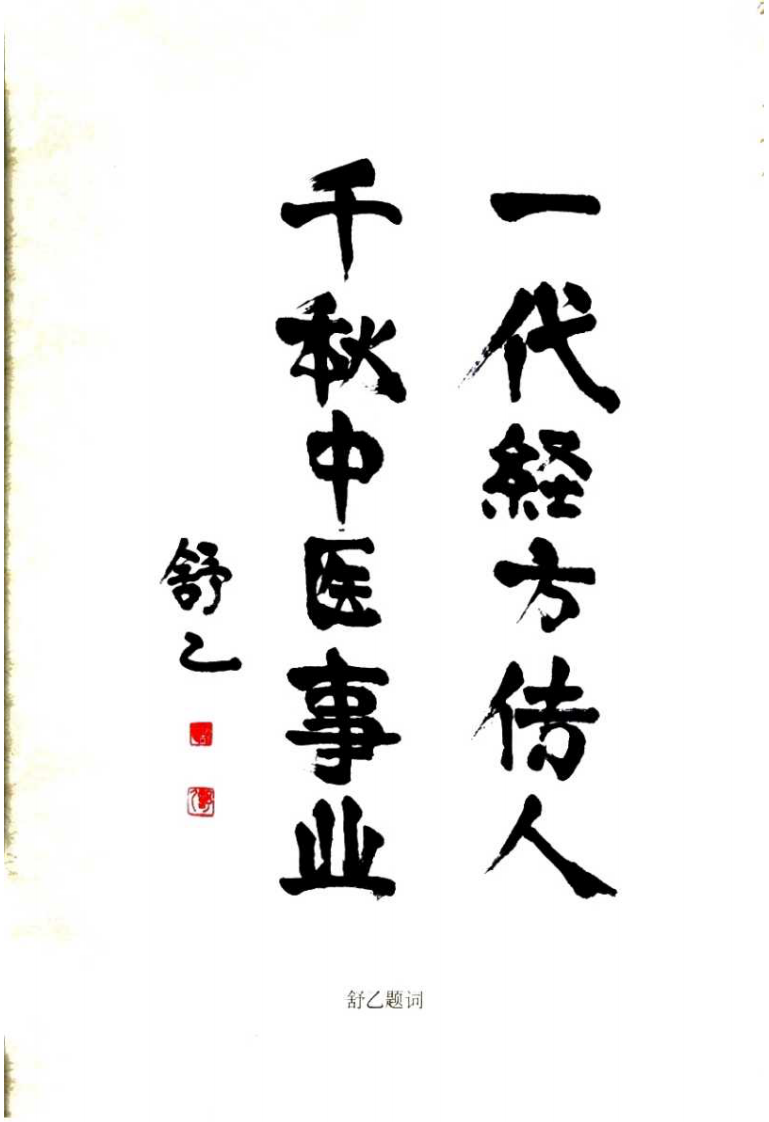 一代経方传人
千秋中医事业
舒乙
舒乙题词